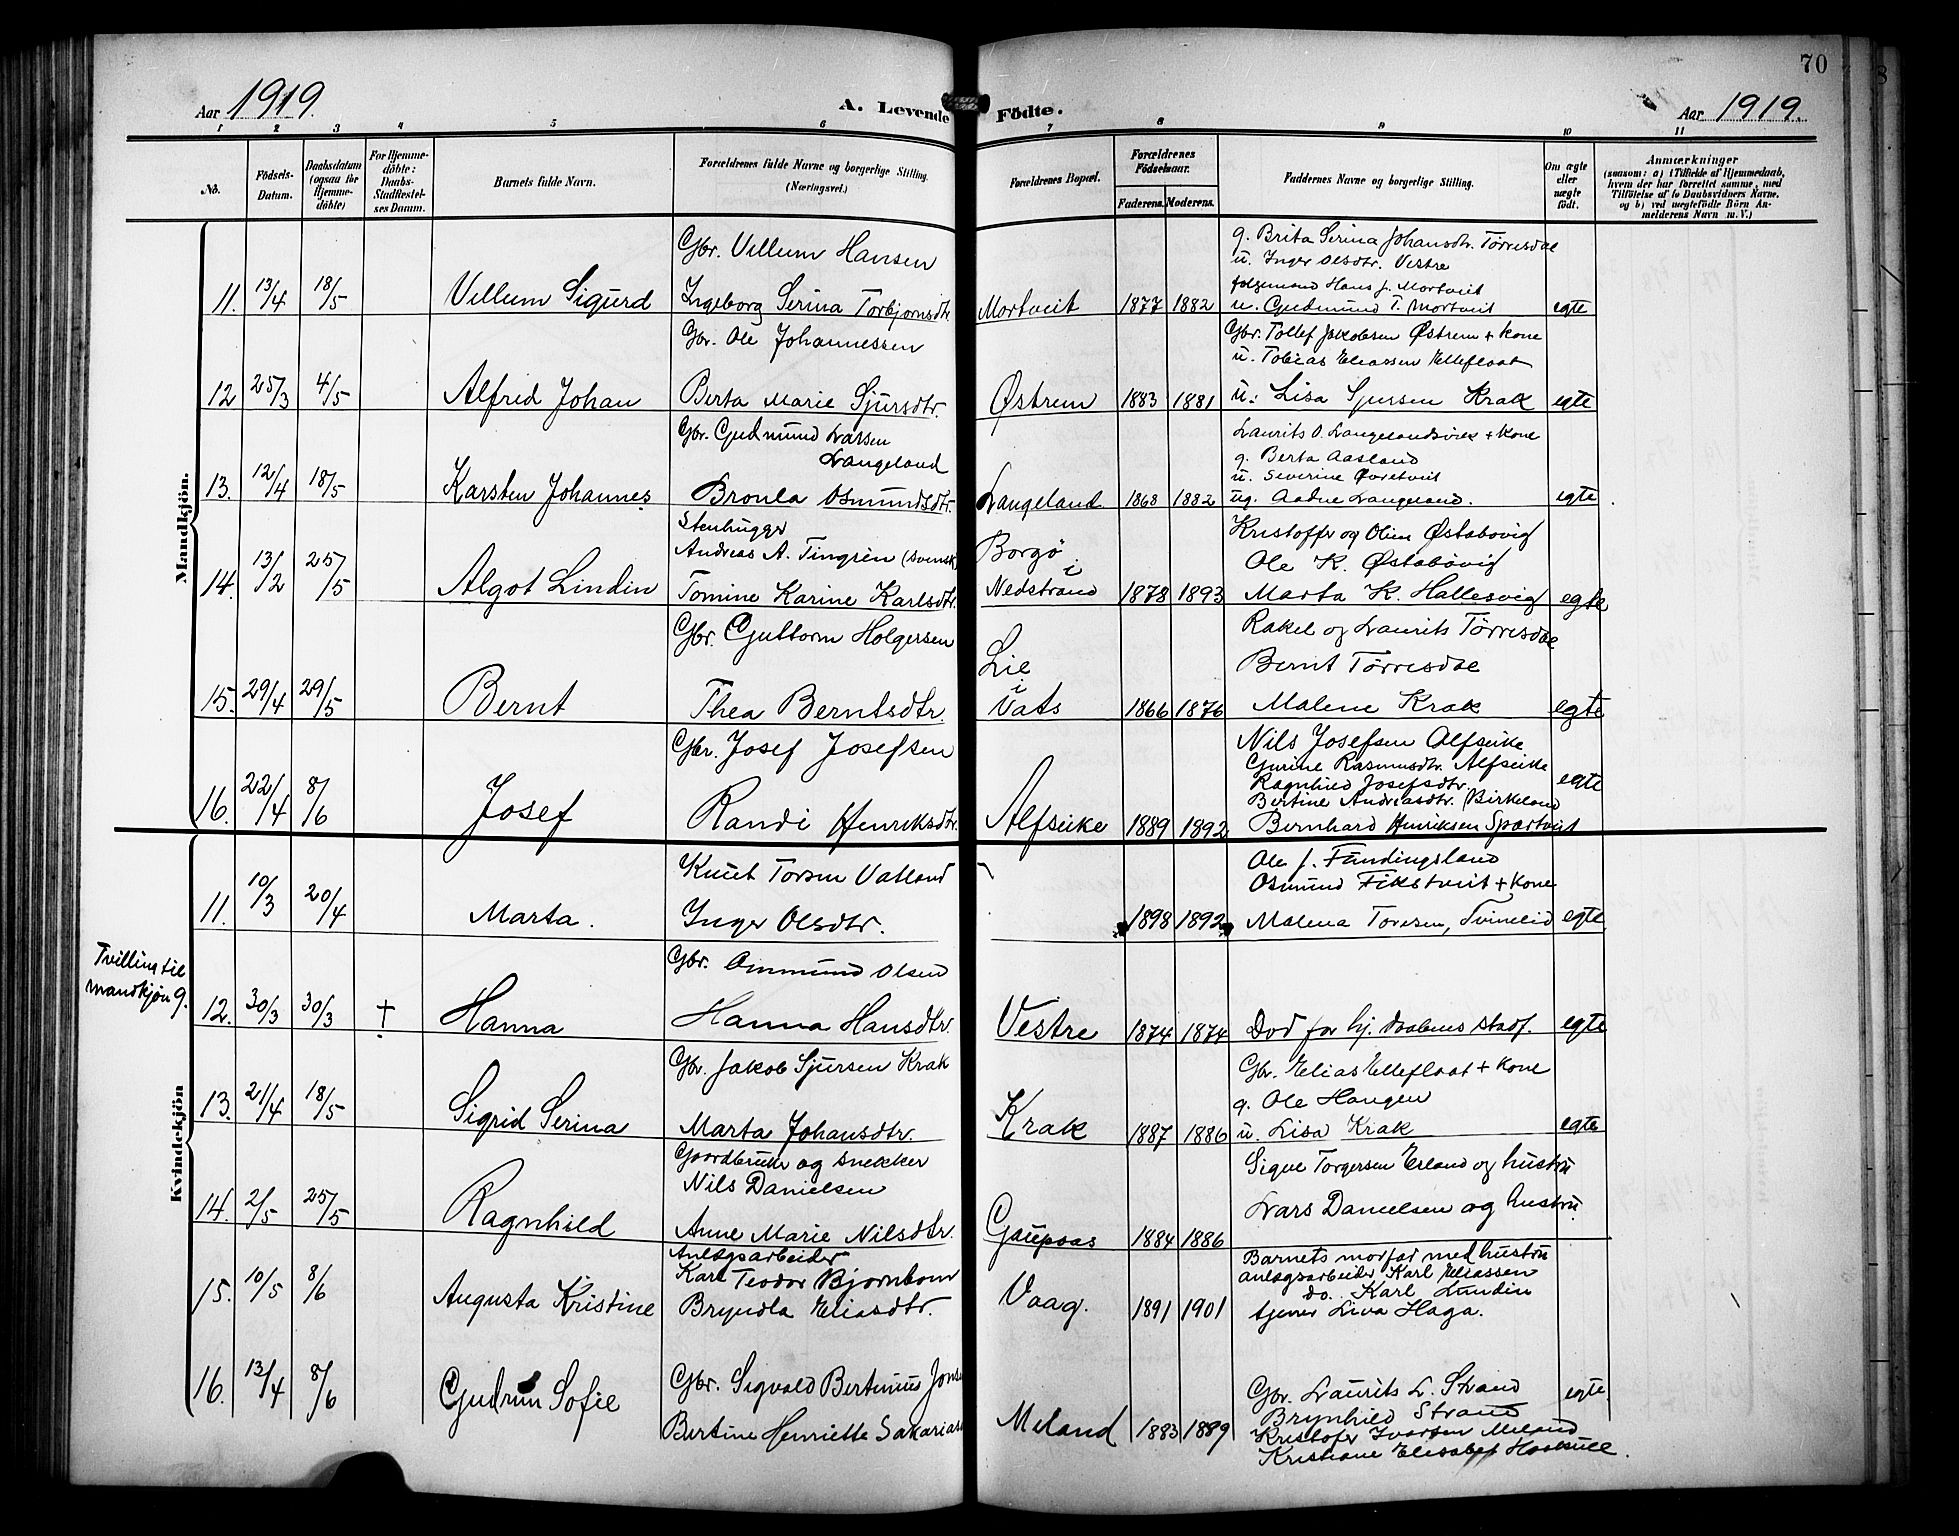 70
Aar 1919.
A. Levende Födte.
Aar 1919.
1 2 3 4 5 6 7 8 9 10 11
No.
Födsels-Datum.
Daabsdatum (ogsaa for Hjemme-döbte)
For Hjemme-döbte: Daabs-Stadfæstel-ses Datum.
Barnets fulde Navn.
Forældrenes fulde Navne og borgerlige Stilling. (Næringsvei.)
Forældrenes Bopæl.
Forældrenes Födselsaar.
Faderens. Moderens.
Faddernes Navne og borgerlige Stilling.
Om ægte eller uægte födt.
Anmærkninger
(saasom: a) i Tilfælde af Hjemmedaab, hvem der har forrettet samme, med Tilföielse af to Daabsvidners Navne, og b) ved uægtefödte Börn An-melderens Navn m. V.)
Mandkjön.
11. 13/4 18/5 Villum Sigurd
Gbr. Villum Hansen
Ingeborg Serina Torbjornsdtr.
Mortveit 1877 1882
g. Brita Serina Johansdtr. Tørresdal
u. Inger Olsdtr. Vestre
følgemand Hans J. Mortveit
u. Gudmund T. Mortveit
egte
12 25/3 4/5 Alfred Johan
Gbr. Ole Johannessen
Berta Marie Sjursdtr.
Østrem 1883 1881
Gbr. Tollef Jakobsen Østrem + kone
u. Tobias Eliassen Ellefloat
u. Lisa Sjursen Krak
egte
13. 12/4 18/5 Karsten Johannes
Gbr. Gudmund Larsen
Langeland
Bronla Osmundsdtr.
Langeland 1868 1882
Laurits O. Langelandsvik + kone
g. Berta Aasland
u. Severine Øvretveit
ug. Aadne Langeland.
egte
14. 13/2 25/5 Algot Lindin
Stenhugger
Andreas A. Tingrèn (svensk)
Tomine Karine Karlsdtr.
Borgø
i
Nedstrand 1878 1893
Kristoffer og Oline Østabøvig
Ole K. Østabøvig
Marta K. Hallesvig
egte
15. 29/4 29/5 Bernt
Gbr. Guttorm Holgersen
Thea Berntsdtr.
Lie
i
Vats 1866 1876
Rakel og Laurits Tørresdal
Bernt Tørresdal
Malene Krak
egte
16. 22/4 8/6 Josef
Gbr. Josef Josefsen
Randi Henriksdtr.
Alfseike 1889 1892
Nils Josefsen Alfseike
Gurine Rasmusdtr. Alfseike
Ragnhild Josefsdtr.
Bertine Andreasdtr. Birkeland
Bernhard Henriksen Spartveit
egte
Kvindekjön
11. 10/3 20/4 Marta.
Knut Torsen Vatland
Inger Olsdtr.
1898 1892
Ole J. Fundingsland
Osmund Fikstveit + kone
Malena Toresen, Svinelid
egte
Tvilling til
mandkjön 9.
12. 30/3 30/3 † Hanna
Gbr. Ommund Olsen
Hanna Hansdtr.
Vestre 1874 1874
Død før hj. daabens stadf.
egte
13. 21/4 18/5 Sigrid Serina
Gbr. Jakob Sjursen Krak
Marta Johansdtr.
Krak 1887 1886
Gbr. Elias Ellefloat + kone
g. Ole Haugen
u. Lisa Krak
egte
14. 2/5 25/5 Ragnhild
Gaardbruker og snekker
Nils Danielsen
Anne Marie Nilsdtr.
Gaupaas 1884 1886
Sigve Torgersen Erland og hustru
Lars Danielsen og hustru.
15. 10/5 8/6 Augusta Kristine
Anlægsarbeider
Karl Teodor Bjornbom
Bryndla Eliasdtr.
Vaag. 1891 1901
Barnets morfar med hustru
anlægsarbeider Karl Eliassen
do. Karl Lundin
tjener Liva Haga.
16. 13/4 8/6 Gudrun Sofie
Gbr. Sigvald Bertinius Jons
Bertine Henriette Sakarias
Meland 1883 1889
Gbr. Laurits L. Strand
Brynhild Strand
Kristofer Ivarsen Meland
Kristiane Elisabet
egte.